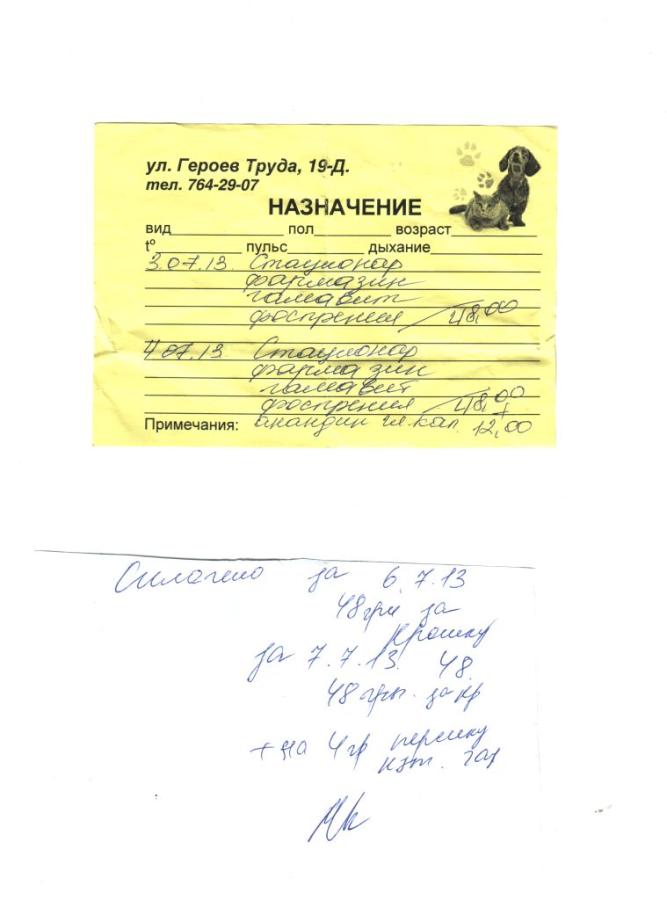 ул. Героев Труда, 19-Д.
тел. 764-29-07
НАЗНАЧЕНИЕ
вид пол возраст
t° пульс дыхание
3.07.13. Стационар
фармазин
гамавит
фоспренил 48,00
4.07.13. Стационар
фармазин
гамавит
фоспренил 48,00
Примечания: анандин гл. кап. 12,00
Сплачено за 6.7.13
48 грн за
Крошку
за 7.7.13. 48.
48 грн. за кр
+ на 4 гр